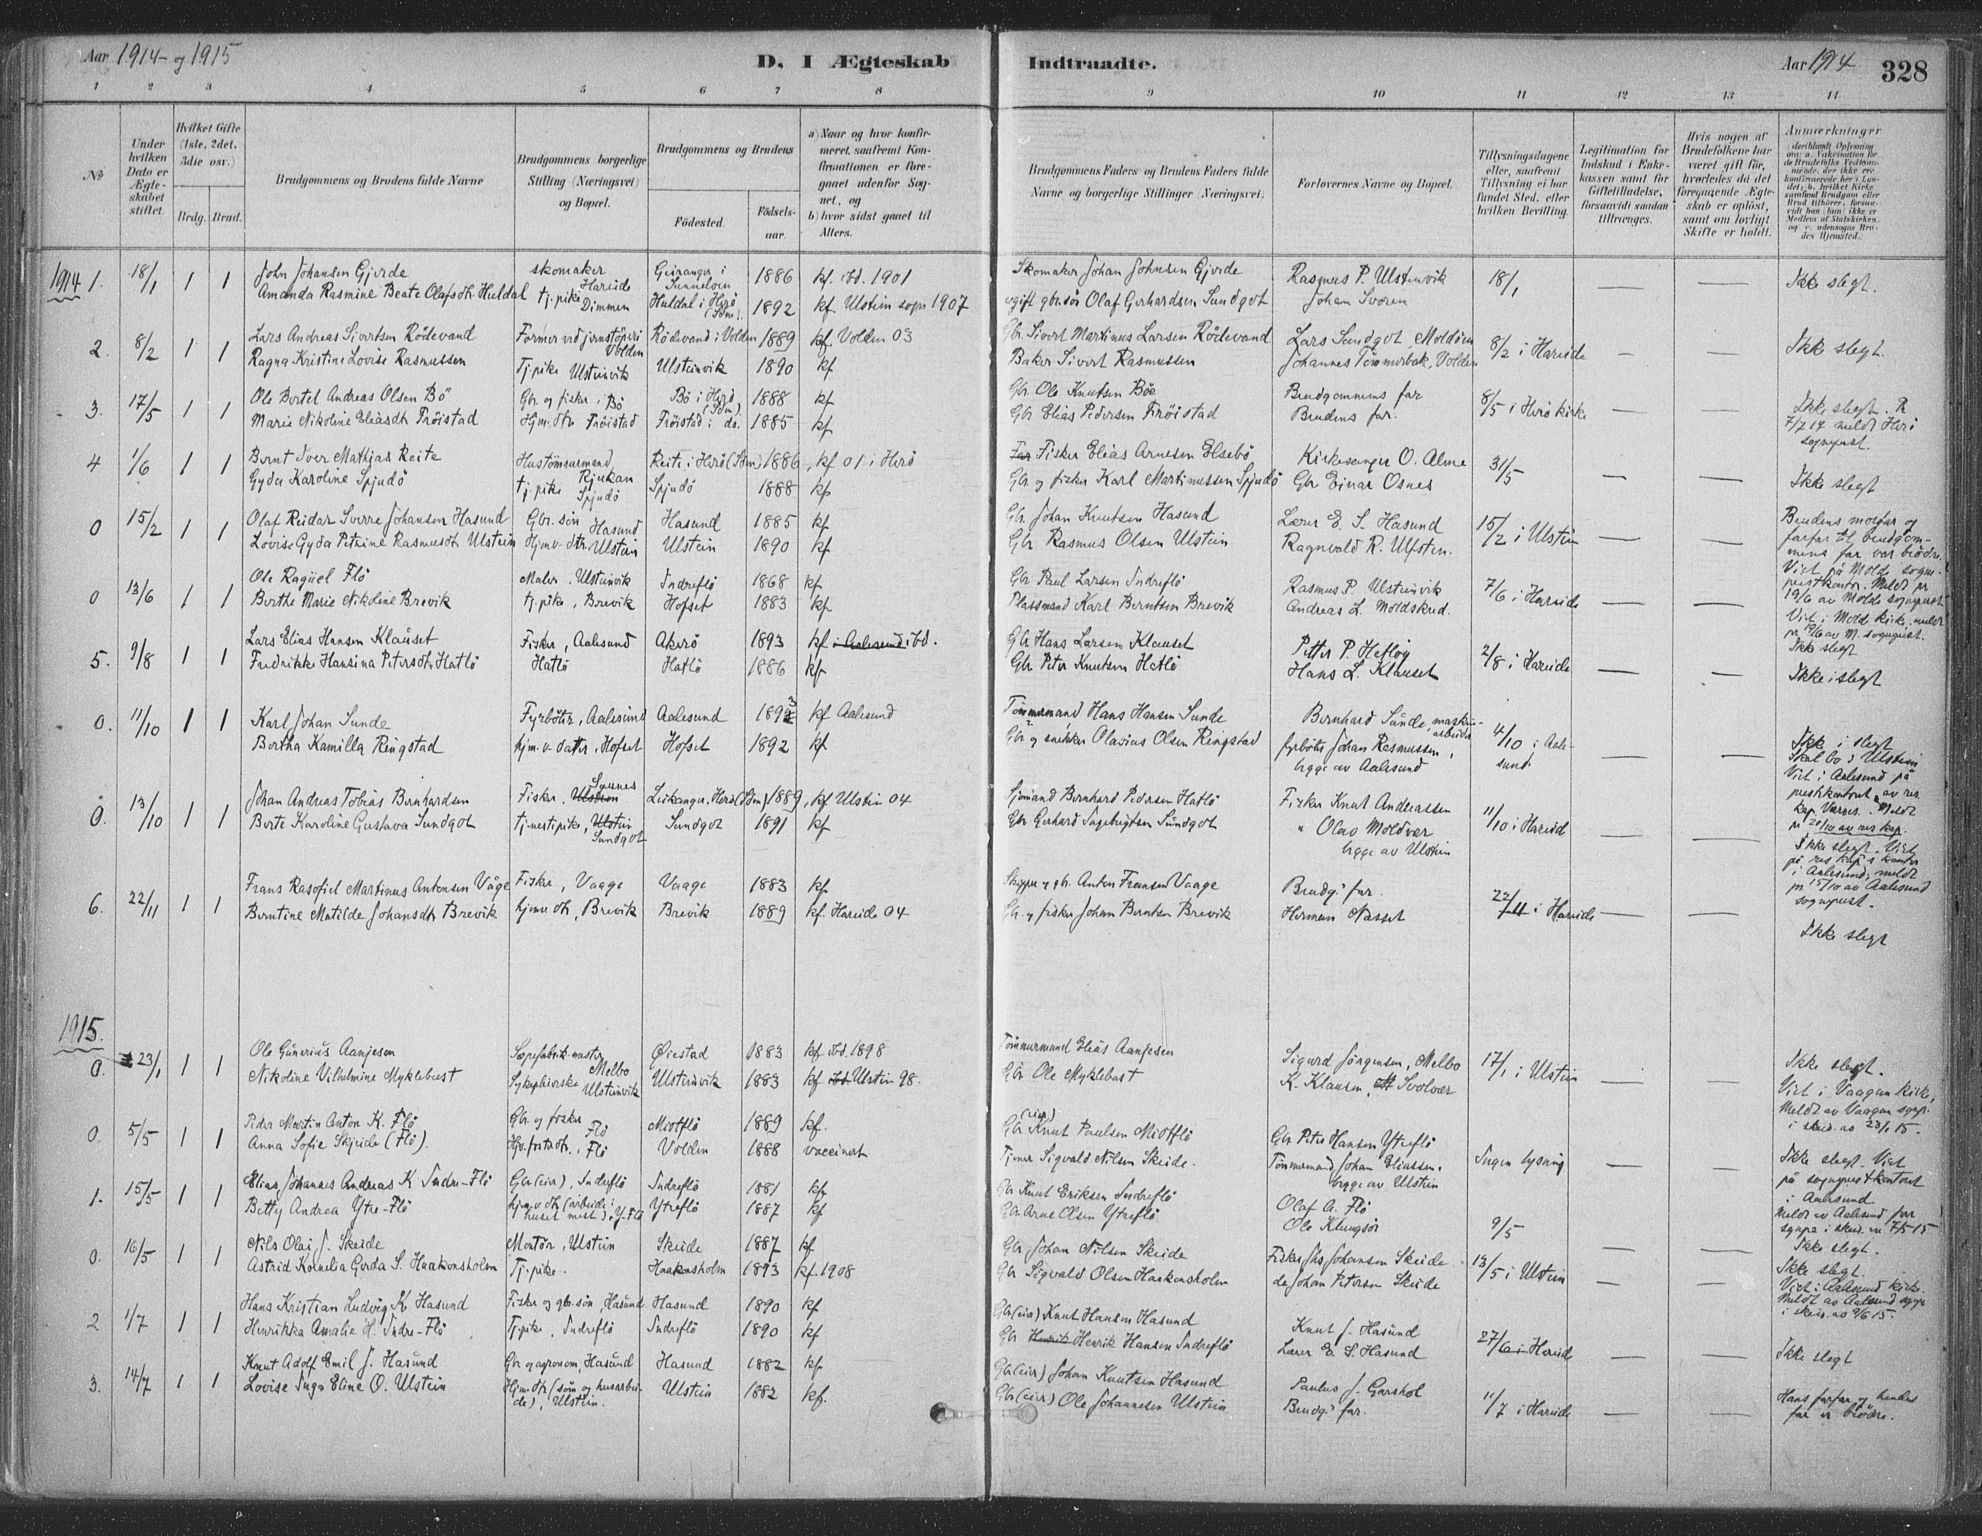 Aar 1914 og 1915
D. I Ægteskab Indtraadte.
Aar 1914
328
1 2 3 4 5 6 7 8 9 10 11 12 13 14
No
Under hvilken Dato er Ægteskabet stiftet.
Hvilket Gifte (1ste, 2det, 3die osv.)
Brdg. Brud.
Brudgommens og Brudens fulde Navne
Brudgommens borgerlige Stilling (Næringsvei) og Bopæl.
Brudgommens og Brudens
Fødested.
Fødselsaar.
a) Naar og hvor konfirmeret, saafremt Konfirmationen er foregaaet udenfor Sognet, og
b) hvor sidst gaaet til Alters.
Brudgommens Faders og Brudens Faders fulde Navne og borgerlige Stillinger (Næringsvei).
Forlovernes Navne og Bopæl.
Tillysningsdagene eller, saafremt Tillysning ei har fundet Sted, efter hvilken Bevilling.
Legitimation for Indskud i Enkekassen samt for Giftetilladelse, forsaavidt saadan tiltrænges.
Hvis nogen af Brudefolkene har været gift før, hvorledes da det foregaaende Ægteskab er opløst, samt om lovligt Skifte er holdt.
Anmærkninger
1914 1. 18/1 1 1 John Johansen Gjerde skomaker Hareide Geiranger i Sunnelven 1886 kf. ibd. 1901 Skomaker Johan Johnsen Gjerde Rasmus P. Ulsteinvik 18/1 — — Ikke slegt.
Amanda Rasmine Beate Olafsdtr. Huldal tj.pike Dimmen Huldal i Herö (Söm). 1892 kf. Ulstein sogn 1907 ugift gbr.søn Olaf Gerhardsen Sundgot Johan Svoren
2. 8/2 1 1 Lars Andreas Sivertsen Rödevand Former ved jernstöperi Volden Rödevand i Volden 1889 kf Volden 03 Gbr. Sivert Martinus Larsen Rödevand Lars Sundgot, Moldöen 8/2 i Hareide — — Ikke slegt.
Ragna Kristine Lovise Rasmussen Tj.pike Ulsteinvik Ulsteinvik 1890 kf Baker Sivert Rasmussen Johannes Tömmerbak, Volden
3. 17/5 1 1 Ole Bertel Andreas Olsen Bö Gbr. og fisker i Bö Bö i Herö (Söm) 1888 kf Gbr. Ole Knutsen Böe Brudgommens far 8/5 i Herö kirke — — Ikke slegt.
Marie Nikoline Eliasdtr Fröistad Hjm. dtr. Fröistad Fröistad i do. 1885 kf Gbr. Elias Pedersen Fröistad Brudens far. 7/7 14 meldt Herö sogneprest.
4 1/6 1 1 Bernt Iver Mathias Reite Hustömmermand Rjukan Reite i Herö (Söm) 1886, kf 01 i Herö Fisker Elias Arnesen Elsebö Kirkesanger O. Alme 31/5 — — Ikke slegt
Gyda Karoline Spjudö tj.pike Spjudö Spjudö 1888 kf Gbr. og fisker Karl Martinussen Spjudö Gbr Einar Osnes
0 15/2 1 1 Olaf Reidar Sverre Johansen Hasund Gbr. søn Hasund Hasund 1885 kf Gbr. Johan Knutsen Hasund Lærer E. S. Hasund 15/2 i Ulstein — — Brudens morfar og
Lovise Gyda Petrine Rasmusdtr Ulstein Hjmv. dtr. Ulstein Ulstein 1890 kf Gbr. Rasmus Olsen Ulstein Ragnvald R. Ulstein. farfar til brudgommens far var brödre.
0 13/6 1 1 Ole Raguel Flö Maler, Ulsteinvik Indreflö 1868 kf Gbr. Paul Larsen Indreflö Rasmus P. Ulsteinvik 7/6 i Hareide — — Viet på Molde sogneprestkontor. Meldt pr
Berthe Marie Nikoline Brevik tj.pike, Brevik Hofset 1883 kf Plassmand Karl Berntsen Brevik Andreas L. Moldskred. 19/6 av Molde sogneprest
5. 9/8 1 1 Lars Elias Hansen Klauset Fisker, Aalesund Akerö 1893 kf i Aalesund ibd. Gbr Hans Larsen Klauset Petter P. Hefloy 2/8 i Hareide — — Ikke slegt
Fredrikke Hansina Petersdtr Hatlö Hatlö Hatlö 1886 kf Gbr. Peter Knutsen Hatlö Hans L. Klauset Ikke i slegt
0. 11/10 1 1 Karl Johan Sunde Fyrböter, Aalesund Aalesund 1892 kf Aalesund Tömmermand Hans Hansen Sunde Bernhard Sunde, maskinarbeider 4/10 i Aalesund — — Ikke i slegt
Bertha Kamilla Ringstad hjm.v. datter, Hofset Hofset 1892 kf Gbr. og snekker Olavius Olsen Ringstad fyrböter Johan Rasmussen, begge av Aalesund Skal bo i Ulstein Viet i Aalesund på prestkontoret av res kap
0. 13/10 1 1 Johan Andreas Tobias Bernhardsen Fisker, Ulstein Leikanger, Herö (Söm) 1889, kf Ulstein 04 Sjömand Bernhard Pedersen Hatlö Fisker Knut Andreassen 11/10 i Hareid — — Ikke slegt. Viet
Berte Karoline Gustava Sundgot tjenestepike, Ulstein Sundgot Sundgot 1891 kf Gbr Gerhard Ingebrigtsen Sundgot " Olav Moldver begge av Ulstein på res kap's kontor i Aalesund; meldt pr 15/10 av Aalesund sogneprest.
6. 22/11 1 1 Frans Rasofiel Martinus Antonsen Våge Fisker, Vaage Vaage 1883 kf Skipper og gbr. Anton Fransen Vaage Brudg's far. 22/11 i Hareide — — Ikke slegt
Berntine Matilde Johansdtr Brevik hjmv dtr, Brevik Brevik 1889 kf Hareide 04 Gbr. og fisker Johan Berntsen Brevik Herman Nesset
1915.
0. 23/1 1 1 Ole Gunerius Aanjesen Sæpefabrik-mester Melbo Øiestad 1883 kf ibd. 1898 Tömmermand Elias Aanjesen Sigurd Jörgensen, Melbo 17/1 i Ulstein Ikke slegt.
Nikoline Vilhelmine Myklebust Sykepleierske Ulsteinvik Ulsteinvik 1883 kf ibd Ulstein 98. Gbr. Ole Myklebust K. Klausen, Svolvær Viet i Vaagan kirke, Meldt av Vaagan sognepr. i skriv. av 23/1 15.
0. 5/5 1 1 Peder Martin Anton K. Flö Gbr. og fisker Flö Midtflö 1889 kf. Gbr (eier) Knut Paulsen Midtflö Gbr Peter Hansen Ytreflö Ingen lysning — — Ikke slegt. Viet
Anna Sofie Skjeide (Flö). Flö Volden 1888 vaccinert Tjener Sigvald Nilsen Skeide. Tömmermand Johan Eliassen. begge av Ulstein på sogneprestkontoret i Aalesund
1. 15/5 1 1 Elias Johannes Andreas K Indre-Flö Gbr (eier), Indreflö Indreflö 1881 kf Gbr Knut Eriksen Indreflö Olaf A. Flö 9/5 — — Ikke slegt.
Betty Andrea Ytre-Flö hjmv dtr (arbeide i huset mest), Y-Flö Ytreflö 1887 kf Gbr Arne Olsen Ytreflö Ole Klungsör
0. 16/5 1 1 Nils Olai J. Skeide Ulstein Skeide 1887 kf Gbr. Johan Nilsen Skeide Fisker Johansen Skeide 13/5 i Ulstein — — Ikke slegt.
Astrid Kornelia Gerda S. Haakonsholm Tj.pike. Haakonsholm 1893 kf. 1908 Gbr Sigvald Olsen Haakonsholm do Johan Petersen Skeide Viet i Aalesund kirke. Meldt av Aalesund
2 1/7 1 1 Hans Kristian Ludvig K Hasund Fisker og gbr.søn, Hasund Hasund 1890 kf Gbr (eier) Knut Hansen Hasund Knut J. Hasund 27/6 i Hareide — — Ikke slegt
Henrikka Amalie H. Indre-Flö Tj.pike, Indreflö Indreflö 1890 kf Gbr. Henrik Hansen Indreflö Lærer E. S. Hasund
3. 14/7 1 1 Knut Adolf Emil J. Hasund Gbr og agronom, Hasund Hasund 1882 kf Gbr (eier) Johan Knutsen Hasund Paulus J. Garshol 11/7 i Hareide — — Hans farfar og hendes
Lovise Inga Eline O. Ulstein Hjmv. dtr (søm og husarbeide), Ulstein. Ulstein 1882 kf. Gbr (eier) Ole Johannesen Ulstein Brudg's far. far er brödre.